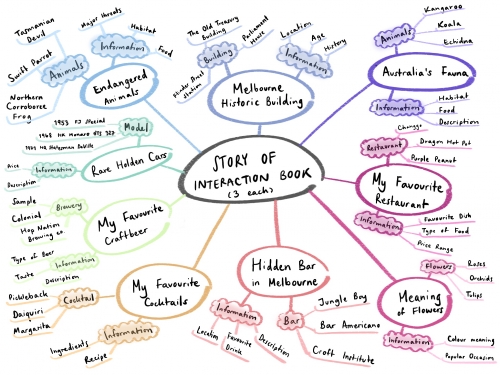 STORY OF
INTERACTION BOOK
(3 each)
Endangered
Animals
Information
Major threats
Habitat
Food
Animals
Tasmanian
Devil
Swift Parrot
Northern
Corroboree
Frog
Melbourne
Historic Building
Building
The Old Treasury
Building
Parliament
House
Flinders Street
Station
Information
Location
Age
History
Australia's Fauna
Animals
Kangaroo
Koala
Echidna
Information
Habitat
Food
Description
Rare Holden Cars
Model
1953 FJ Special
1968 HK Monaro GTS 327
Information
Price
Description
My Favourite
Restaurant
Restaurant
Changge
Dragon Hot Pot
Purple Peanut
Information
Favourite Dish
Type of Food
Price Range
My Favourite
Craftbeer
Brewery
Sample
Colonial
Hop Nation
Brewing co.
Information
Type of Beer
Taste
Description
My Favourite
Cocktails
Cocktail
Pickleback
Daiquiri
Margarita
Information
Ingredients
Recipe
Hidden Bar
in Melbourne
Information
Location
Favourite
Drink
Description
Bar
Jungle Boy
Bar Americano
Croft Institute
Meaning
of Flowers
Flowers
Roses
Orchids
Tulips
Information
Colour meaning
Popular Occasion